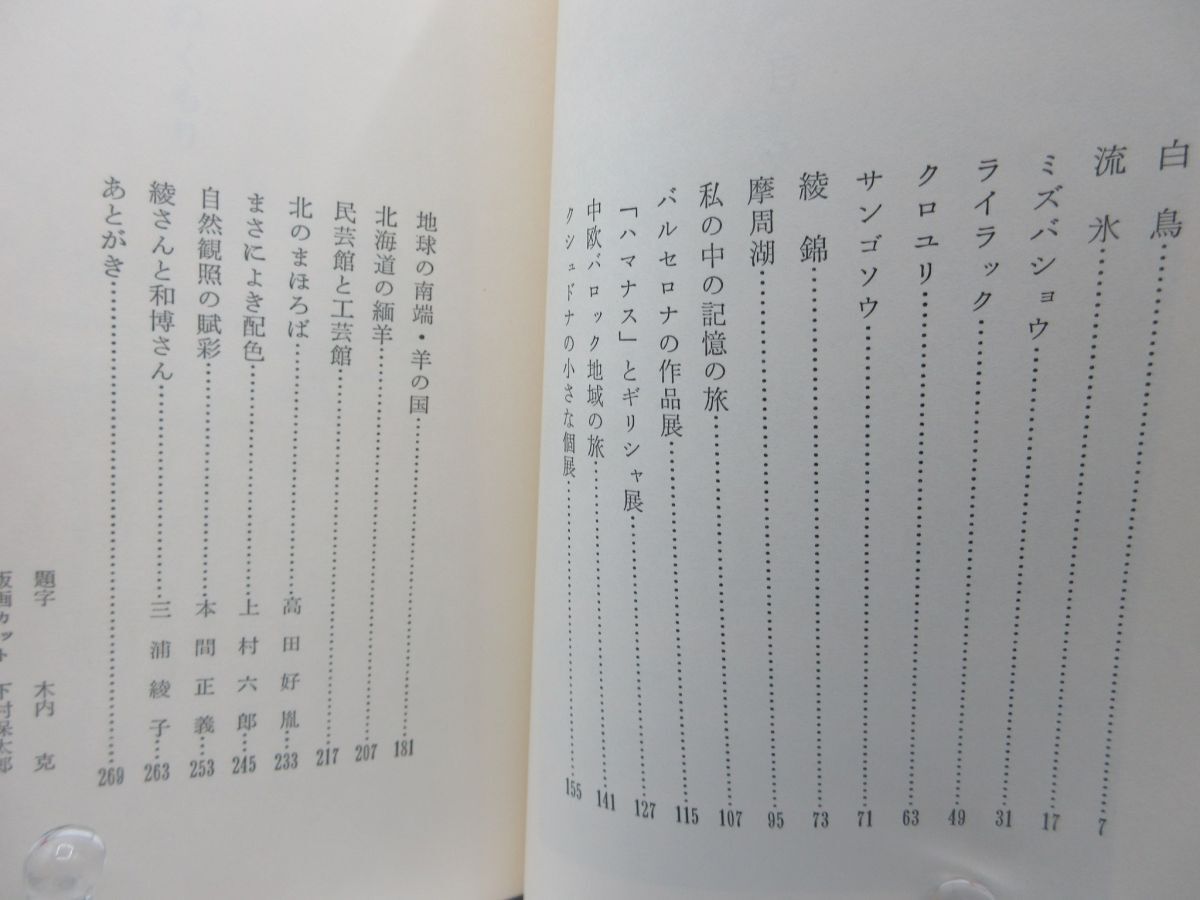 白鳥……7
流氷……17
ミズバショウ……31
ライラック……49
クロユリ……63
サンゴソウ……71
綾錦……73
摩周湖……95
私の中の記憶の旅……107
バルセロナの作品展……115
「ハマナス」とギリシャ展……127
中欧バロック地域の旅……141
クシュドナの小さな個展……155
地球の南端・羊の国……181
北海道の緬羊……207
民芸館と工芸館……217
北のまほろば……高田好胤……233
まさによき配色……上村六郎……245
自然観照の賦彩……本間正義……253
綾さんと和博さん……三浦綾子……263
あとがき……269
題字 木内 克
版画カット 下村保太郎